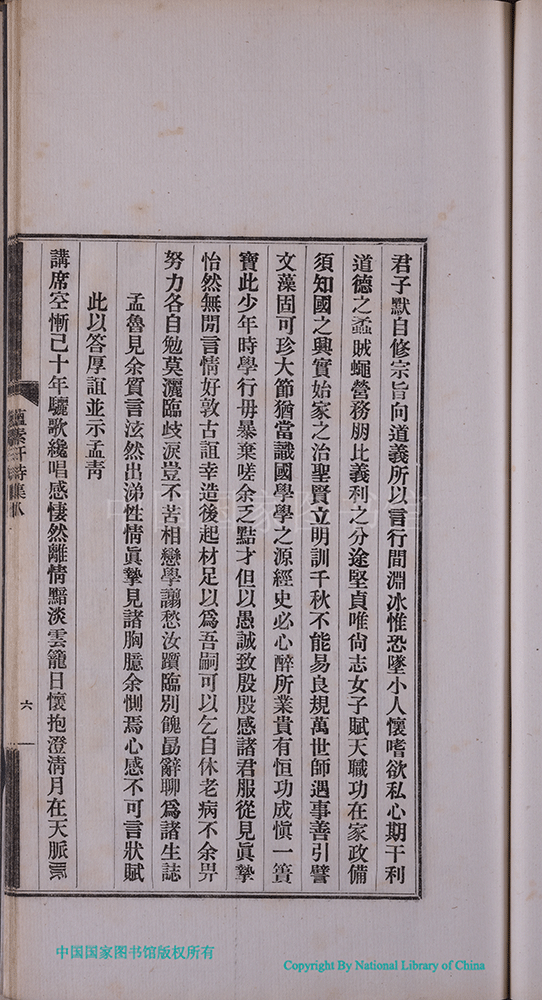 君子默自修宗旨向道義所以言行間淵冰惟恐墜小人懷嗜欲私心期干利
道德之蟊賊蠅營務朋比義利之分途堅貞唯尙志女子賦天職功在家政備
須知國之興實始家之治聖賢立明訓千秋不能易良規萬世師遇事善引譬
文藻固可珍大節猶當識國學學之源經史必心醉所業貴有恒功成愼一簣
寶此少年時學行毋暴棄嗟余乏點才但以愚誠致殷殷感諸君服從見眞摯
怡然無閒言情好敦古誼幸造後起材足以爲吾嗣可以乞自休老病不余畀
努力各自勉莫灑臨歧淚豈不苦相戀學讓愁汝躓臨別餽勗辭聊爲諸生誌
孟魯見余質言泫然出涕性情眞摯見諸胸臆余惻焉心感不可言狀賦
此以答厚誼並示孟靑
講席空慚已十年驪歌纔唱感悽然離情黯淡雲籠日懷抱澄淸月在天脈
蘊素軒詩集八
六
中国国家图书馆
中国国家图书馆版权所有
Copyright By National Library of China